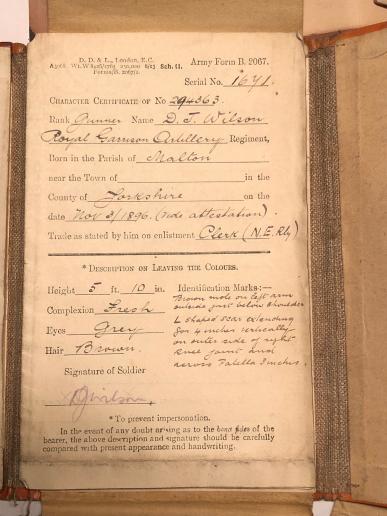 D. D. & L., London, E.C. Army Form B. 2067.
Sch. 41.
Forms/B. 2067/2
Serial No. 1671.
CHARACTER CERTIFICATE OF No 294363.
Rank Gunner Name D. J. Wilson
Royal Garrison Artillery Regiment,
Born in the Parish of Malton
near the Town of in the
County of Yorkshire on the
date Nov 3/1896. (vide attestation).
Trade as stated by him on enlistment Clerk (N.E. Rly)
* DESCRIPTION ON LEAVING THE COLOURS.
Height 5 ft. 10 in. Identification Marks:—
Brown mole on left arm
outside just below shoulder
L shaped scar extending
for 4 inches vertically
on outer side of right
knee joint and
across Patella 3 inches.
Complexion Fresh
Eyes Grey
Hair Brown
Signature of Soldier
DJWilson
* To prevent impersonation.
In the event of any doubt arising as to the bona fides of the
bearer, the above description and signature should be carefully
compared with present appearance and handwriting.